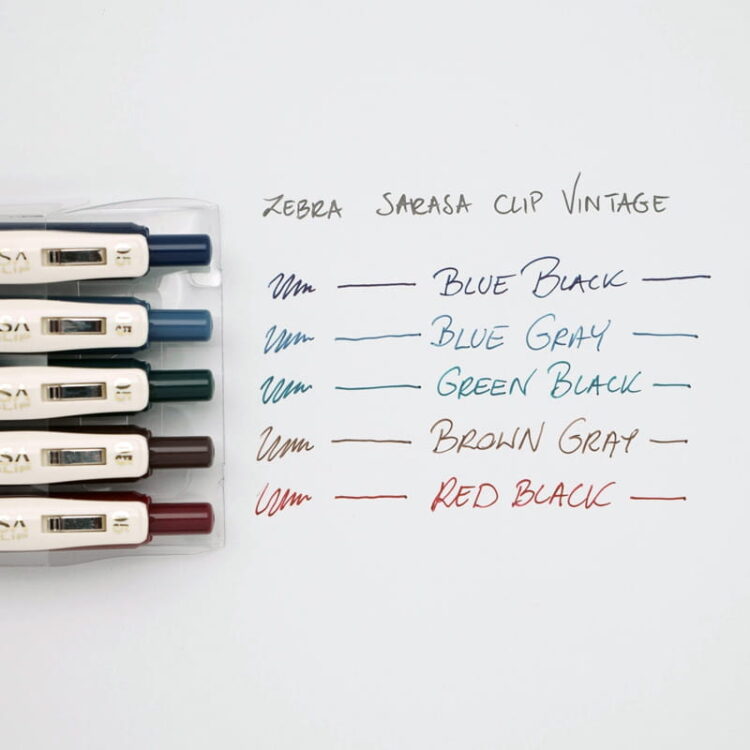 ZEBRA SARASA CLIP VINTAGE
BLUE BLACK
BLUE GRAY
GREEN BLACK
BROWN GRAY
RED BLACK
SA
CLIP
SA
CLIP
SA
CLIP
SA
CLIP
SA
CLIP